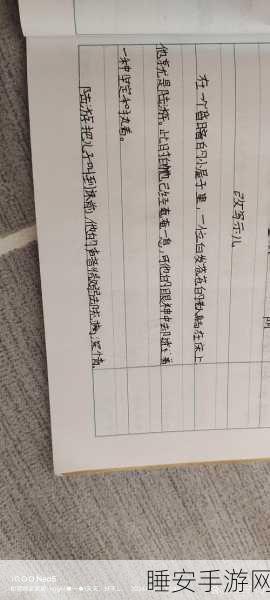 改写示儿
在一个昏暗的小屋子里，一位白发苍苍的老人躺在床上
他就是陆游。此时的他已经奄奄一息，可他的眼神中却
一种坚定和执着。
陆游把儿子叫到床前，他的声音
iQOO Neo5
睡安手游网